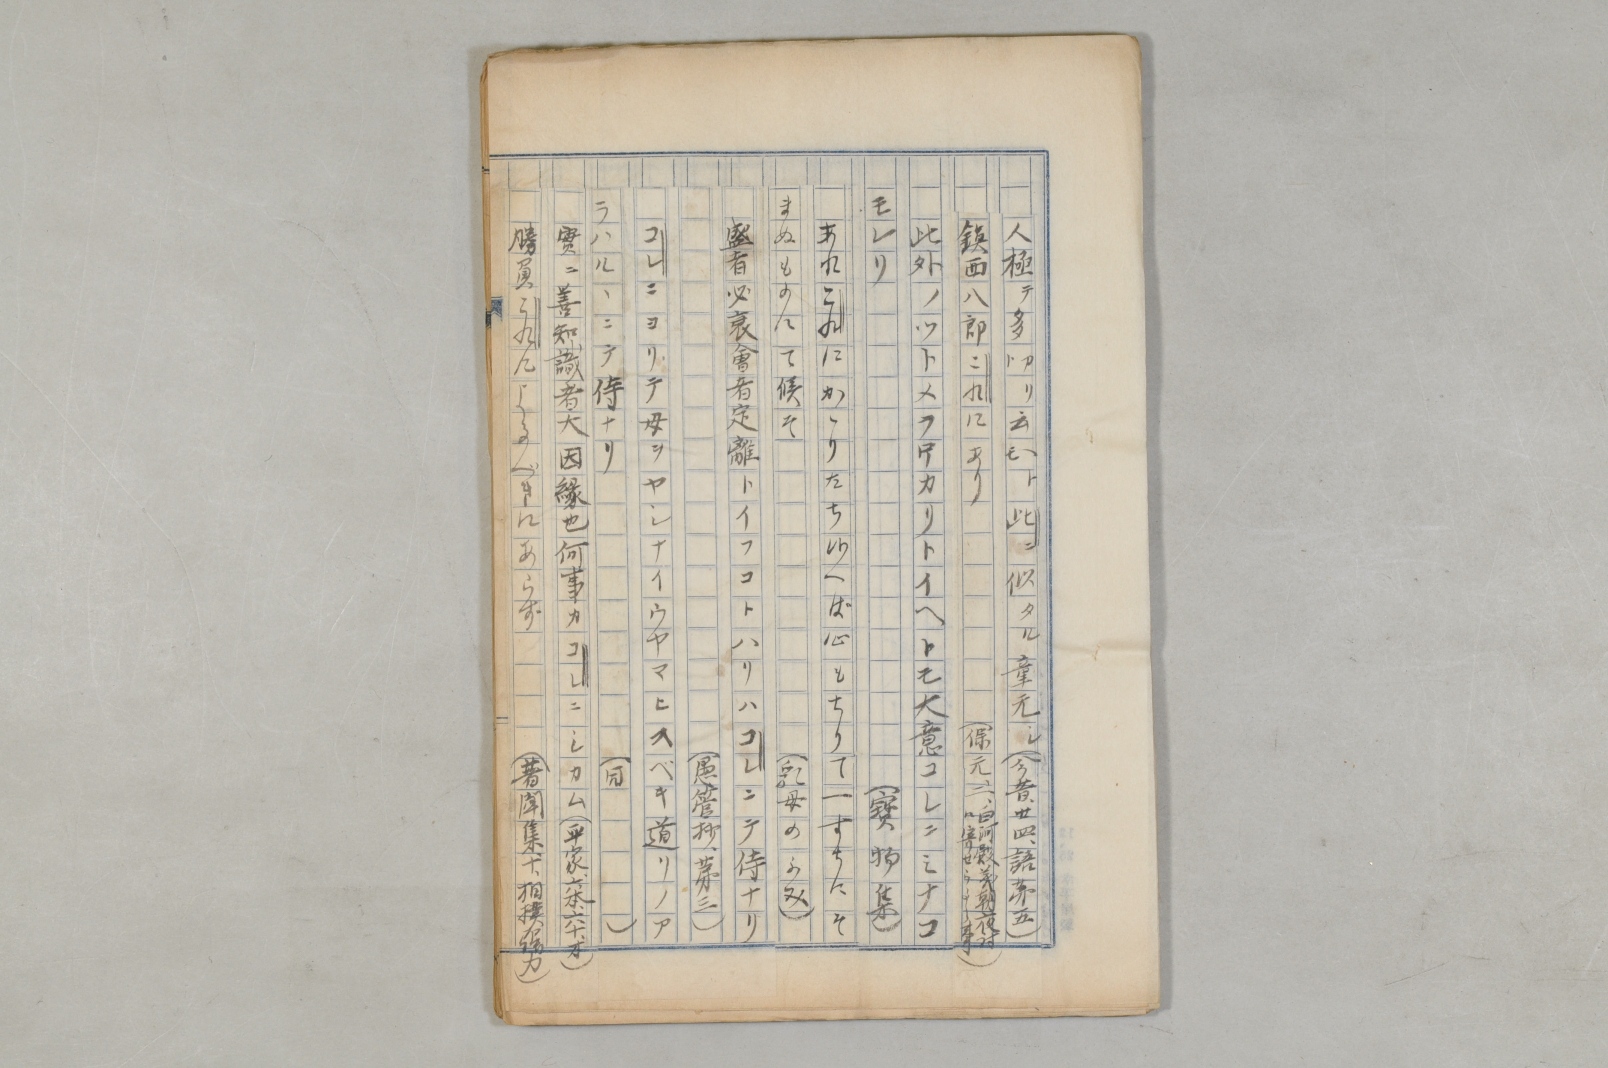 人極テ多カリ云ヘト此ニ似タル童元シ(今昔廿四、語第五)
鎮西八郎これにあり(保元一、白河殿義朝夜討に寄せらるる事)
此外ノツトメヲロカリトイヘトモ大意コレニミナコ
モレリ(寶物集)
あれこれにかゝりたち給へば心もちりて一すちにそ
まぬものにて候そ(乳母のふみ)
盛者必衰會者定離トイフコトハリハコレニテ侍ナリ
(愚管抄、第三)
コレニヨリテ母ヲヤシナイウヤマヒスベキ道リノア
ラハルヽニテ侍ナリ(同)
實ニ善知識者大因縁也何事カコレニシカム(平家、六本、六十オ)
勝負これによるべきにあらず(著聞集十、相撲強力)